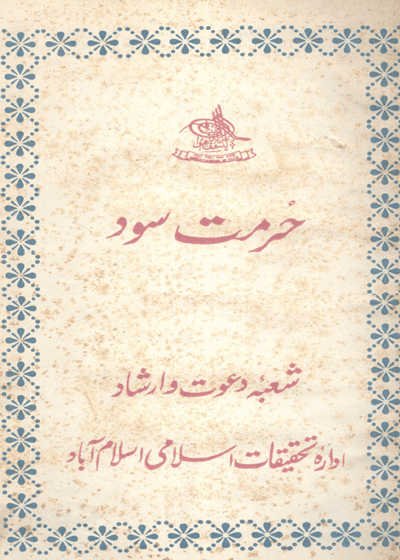 حُرمت سود
شعبۂ دعوت و ارشاد
ادارۂ تحقیقات اسلامی اسلام آباد